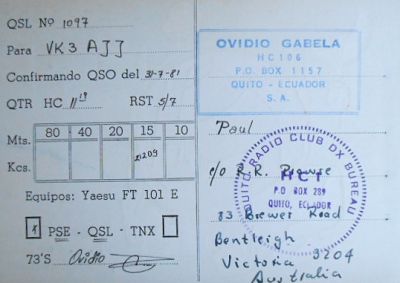 QSL Nº 1097
Para VK3 AJJ
Confirmando QSO del 31-7-81
QTR HC 11 19 RST 5/7
Mts. 80 40 20 15 10
Kcs. 21209
Equipos: Yaesu FT 101 E
X PSE - QSL - TNX
73'S Ovidio
OVIDIO GABELA
HC106
P.O. BOX 1157
QUITO - ECUADOR
S.A.
Paul
c/o R.R. Prowse
83 Brewer Road
Bentleigh
Victoria 3204
Australia
QUITO RADIO CLUB DX BUREAU
HC1
P.O BOX 289
QUITO, ECUADOR